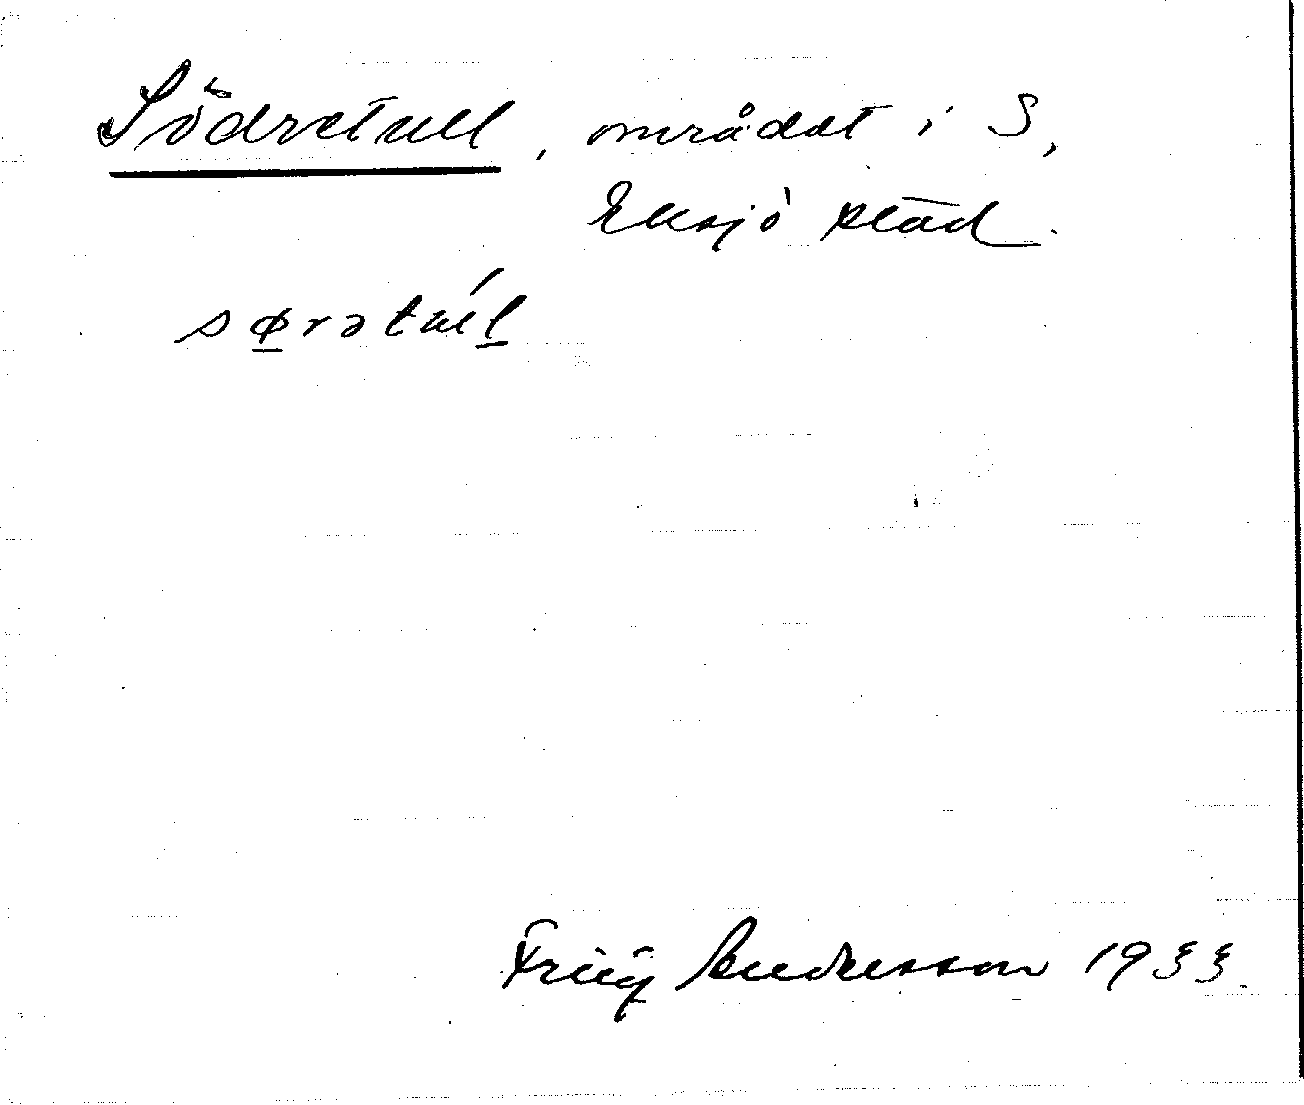 Södretull, området i S,
Eksjö stad.
sørətul̲
Andersson 1933.